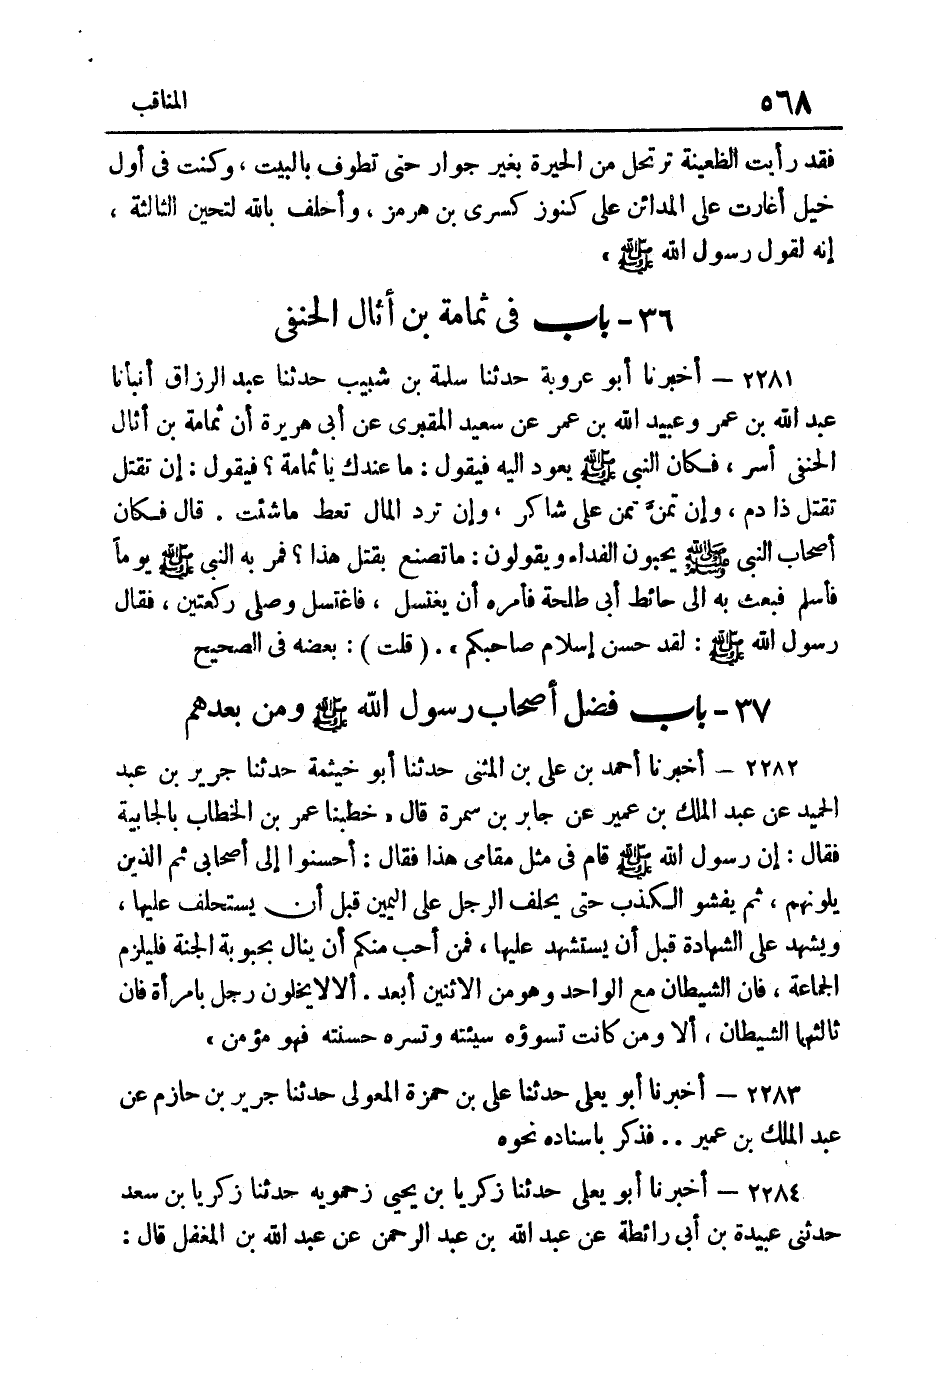 ٥٦٨ المناقب
فقد رأيت الظعينة ترتحل من الحيرة بغير جوار حتى تطوف بالبيت ، وكنت فى أول
خيل أغارت على المدائن على كنوز كسرى بن هرمز ، وأحلف بالله لتحين الثالثة ،
إنه لقول رسول الله ﷺ »
٣٦ - باب فى ثمامة بن أثال الحنفى
٢٢٨١ – أخبرنا أبو عروبة حدثنا سلمة بن شبيب حدثنا عبد الرزاق أنبأنا
عبد الله بن عمر وعبيد الله بن عمر عن سعيد المقبرى عن أبى هريرة أن ثمامة بن أثال
الحنفى أسر ، فكان النبى ﷺ يعود اليه فيقول : ما عندك يا ثمامة ؟ فيقول : إن تقتل
تقتل ذا دم ، وإن تمنَّ تمن على شاكر ، وإن ترد المال تعط ماشئت . قال فكان
أصحاب النبى ﷺ يحبون الفداء ويقولون : ماتصنع بقتل هذا ؟ فمر به النبى ﷺ يوماً
فأسلم فبعث به الى حائط أبى طلحة فأمره أن يغتسل ، فاغتسل وصلى ركعتين ، فقال
رسول الله ﷺ : لقد حسن إسلام صاحبكم » . ( قلت ) : بعضه فى الصحيح
٣٧ - باب فضل أصحاب رسول الله ﷺ ومن بعدهم
٢٢٨٢ – أخبرنا أحمد بن على بن المثنى حدثنا أبو خيثمة حدثنا جرير بن عبد
الحميد عن عبد الملك بن عمير عن جابر بن سمرة قال « خطبنا عمر بن الخطاب بالجابية
فقال : إن رسول الله ﷺ قام فى مثل مقامى هذا فقال : أحسنوا إلى أصحابى ثم الذين
يلونهم ، ثم يفشو الكذب حتى يحلف الرجل على اليمين قبل أن يستحلف عليها ،
ويشهد على الشهادة قبل أن يستشهد عليها ، فمن أحب منكم أن ينال بحبوبة الجنة فليلزم
الجماعة ، فان الشيطان مع الواحد وهو من الاثنين أبعد . ألا لايخلون رجل بامرأة فان
ثالثهما الشيطان ، ألا ومن كانت تسوؤه سيئته وتسره حسنته فهو مؤمن »
٢٢٨٣ – أخبرنا أبو يعلى حدثنا على بن حمزة المعولى حدثنا جرير بن حازم عن
عبد الملك بن عمير .. فذكر باسناده نحوه
٢٢٨٤ – أخبرنا أبو يعلى حدثنا زكريا بن يحيى زحمويه حدثنا زكريا بن سعد
حدثنى عبيدة بن أبى رائطة عن عبد الله بن عبد الرحمن عن عبد الله بن المغفل قال :